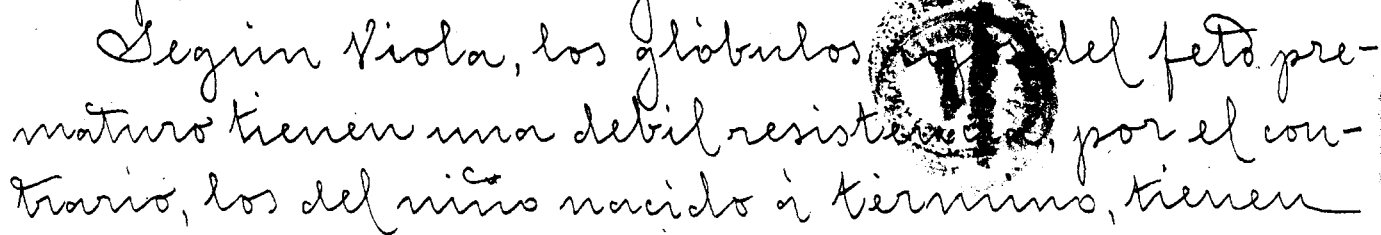 Según Viola, los glóbulos rojos del feto pre-
maturo tienen una debil resistencia, por el con-
trario, los del niño nacido á término, tienen